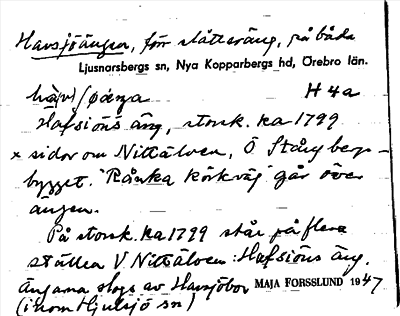 Havsjöängen, förr slåtteräng, på båda
Ljusnarsbergs sn, Nya Kopparbergs hd, Örebro län.
hà(v)/øæŋa H 4 a
Hafsiöns äng, storsk. ka 1799
x sidor om Nittälven, Ö Stångbergs-
bygget. "Rånka körkväj" går över
ängen.
På storsk. ka 1799 står på flera
ställen V Nittälven: Hafsiöns äng.
Ängarna slogs av Havsjöbor MAJA FORSSLUND 1947
(inom Hjulsjö sn)